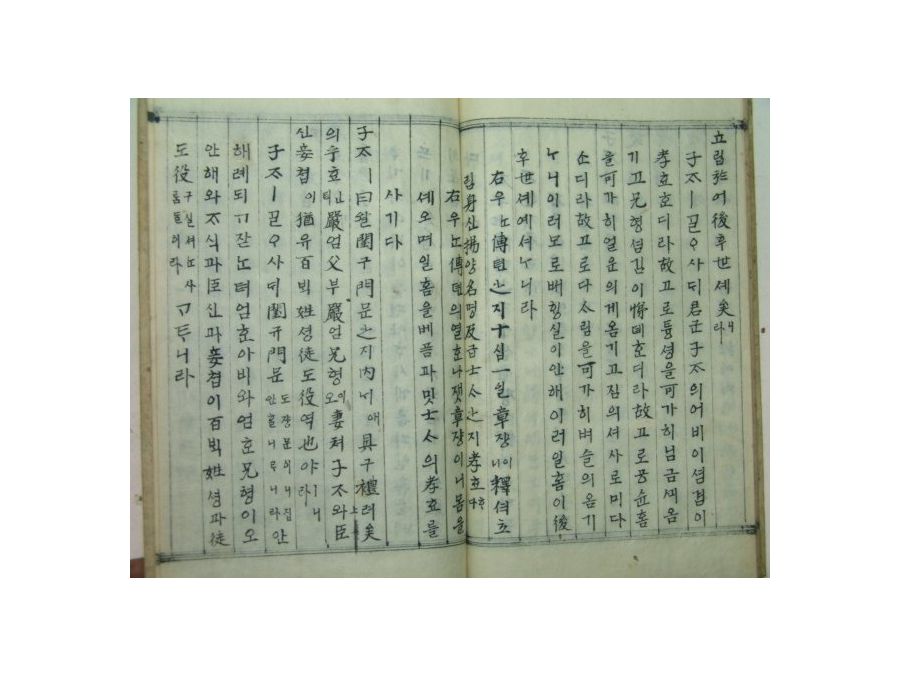 立립於어後후世셰矣
라
子ᄌᆞㅣᄀᆞᆯᄋᆞ사ᄃᆡ君군子ᄌᆞ의어버이셤김이
孝효호디라故고로튱셩을可가히님금ᄭᅴ옴
기고兄형셤김이悌뎨호디라故고로공슌홈
을可가히얼운의게옴기고집의셔사로미다
ᄉᆞ디라故고로다ᄉᆞ림을可가히벼슬의옴기
ᄂᆞ니이러모로배ᄒᆡᆼ실이안해이러일홈이後
후世셰예셔ᄂᆞ니라
右우ᄂᆞᆫ傳뎐之지十십一일章쟝이니釋셕
립身신揚양名명及급士ᄉᆞ之지孝효
右우ᄂᆞᆫ傳뎐의열ᄒᆞᆫ나잿章쟝이니몸을
셰오며일홈을베픔과밋士ᄉᆞ의孝효를
사기다
子ᄌᆞㅣ曰왈閨규門문之지內ᄂᆡ애具구禮례矣
의乎호뎌嚴엄父부嚴엄兄형이오妻쳐子ᄌᆞ와臣
신妾쳡이猶유百ᄇᆡᆨ姓셩徒도役역也야
子ᄌᆞㅣᄀᆞᆯᄋᆞ사ᄃᆡ閨규門문
안
해례되ᄀᆞ잔ᄂᆞᆫ뎌엄ᄒᆞᆫ아비와엄ᄒᆞᆫ兄형이오
안해와ᄌᆞ식과臣신과妾쳡이百ᄇᆡᆨ姓셩과徒
도役
ᄀᆞᄐᆞ니라